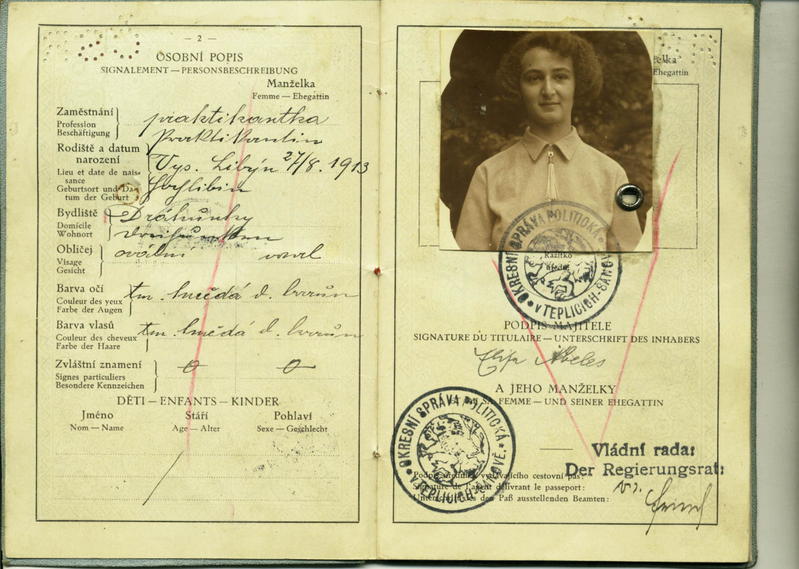 — 2 —
OSOBNÍ POPIS
SIGNALEMENT — PERSONSBESCHREIBUNG
Manželka
Femme — Ehegattin
Zaměstnání
Profession
Beschäftigung
praktikantka
Praktikantin
Rodiště a datum
narození
Lieu et date de nais-
sance
Geburtsort und Da-
tum der Geburt
Vys. Libyn 27/8. 1913
Bydliště
Domicile
Wohnort
Obličej
Visage
Gesicht
ovální oval
Barva očí
Couleur des yeux
Farbe der Augen
tm. hnědá d. braun
Barva vlasů
Couleur des cheveux
Farbe der Haare
tm. hnědá d. braun
Zvláštní znamení
Signes particuliers
Besondere Kennzeichen
DĚTI — ENFANTS — KINDER
Jméno Stáří Pohlaví
Nom — Name Age — Alter Sexe — Geschlecht
Ehegattin
OKRESNÍ SPRÁVA POLITICKÁ
V TEPLICÍCH-ŠANOVĚ
Razítko
PODPIS MAJITELE
SIGNATURE DU TITULAIRE — UNTERSCHRIFT DES INHABERS
Abeles
A JEHO MANŽELKY
FEMME — UND SEINER EHEGATTIN
OKRESNÍ SPRÁVA POLITICKÁ
V TEPLICÍCH-ŠANOVĚ
Vládní rada:
Der Regierungsrat:
cestovní pas:
Signature de l'agent délivrant le passeport:
Unterschrift des den Paß ausstellenden Beamten: